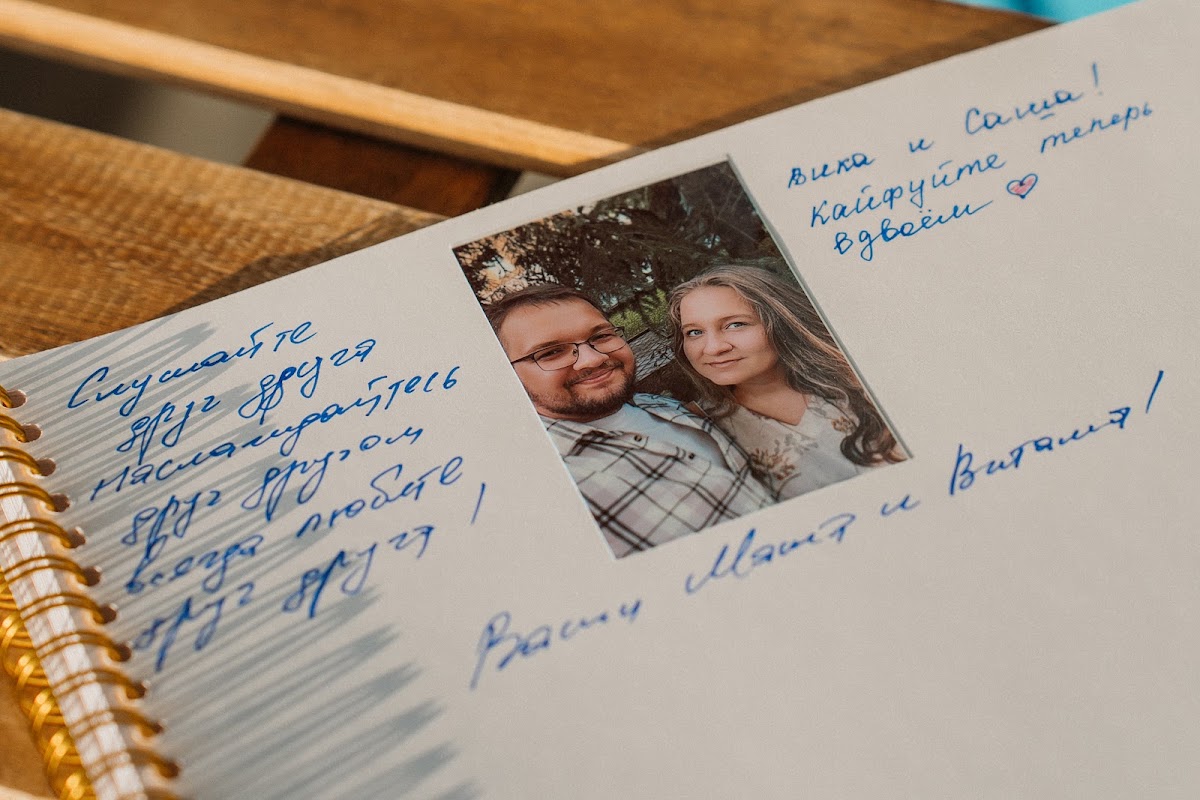 Слушайте
друг друга
наслаждайтесь
друг другом
всегда любите
друг друга!
Вика и Саша!
Кайфуйте теперь
вдвоём
Ваши Маша и Виталя!